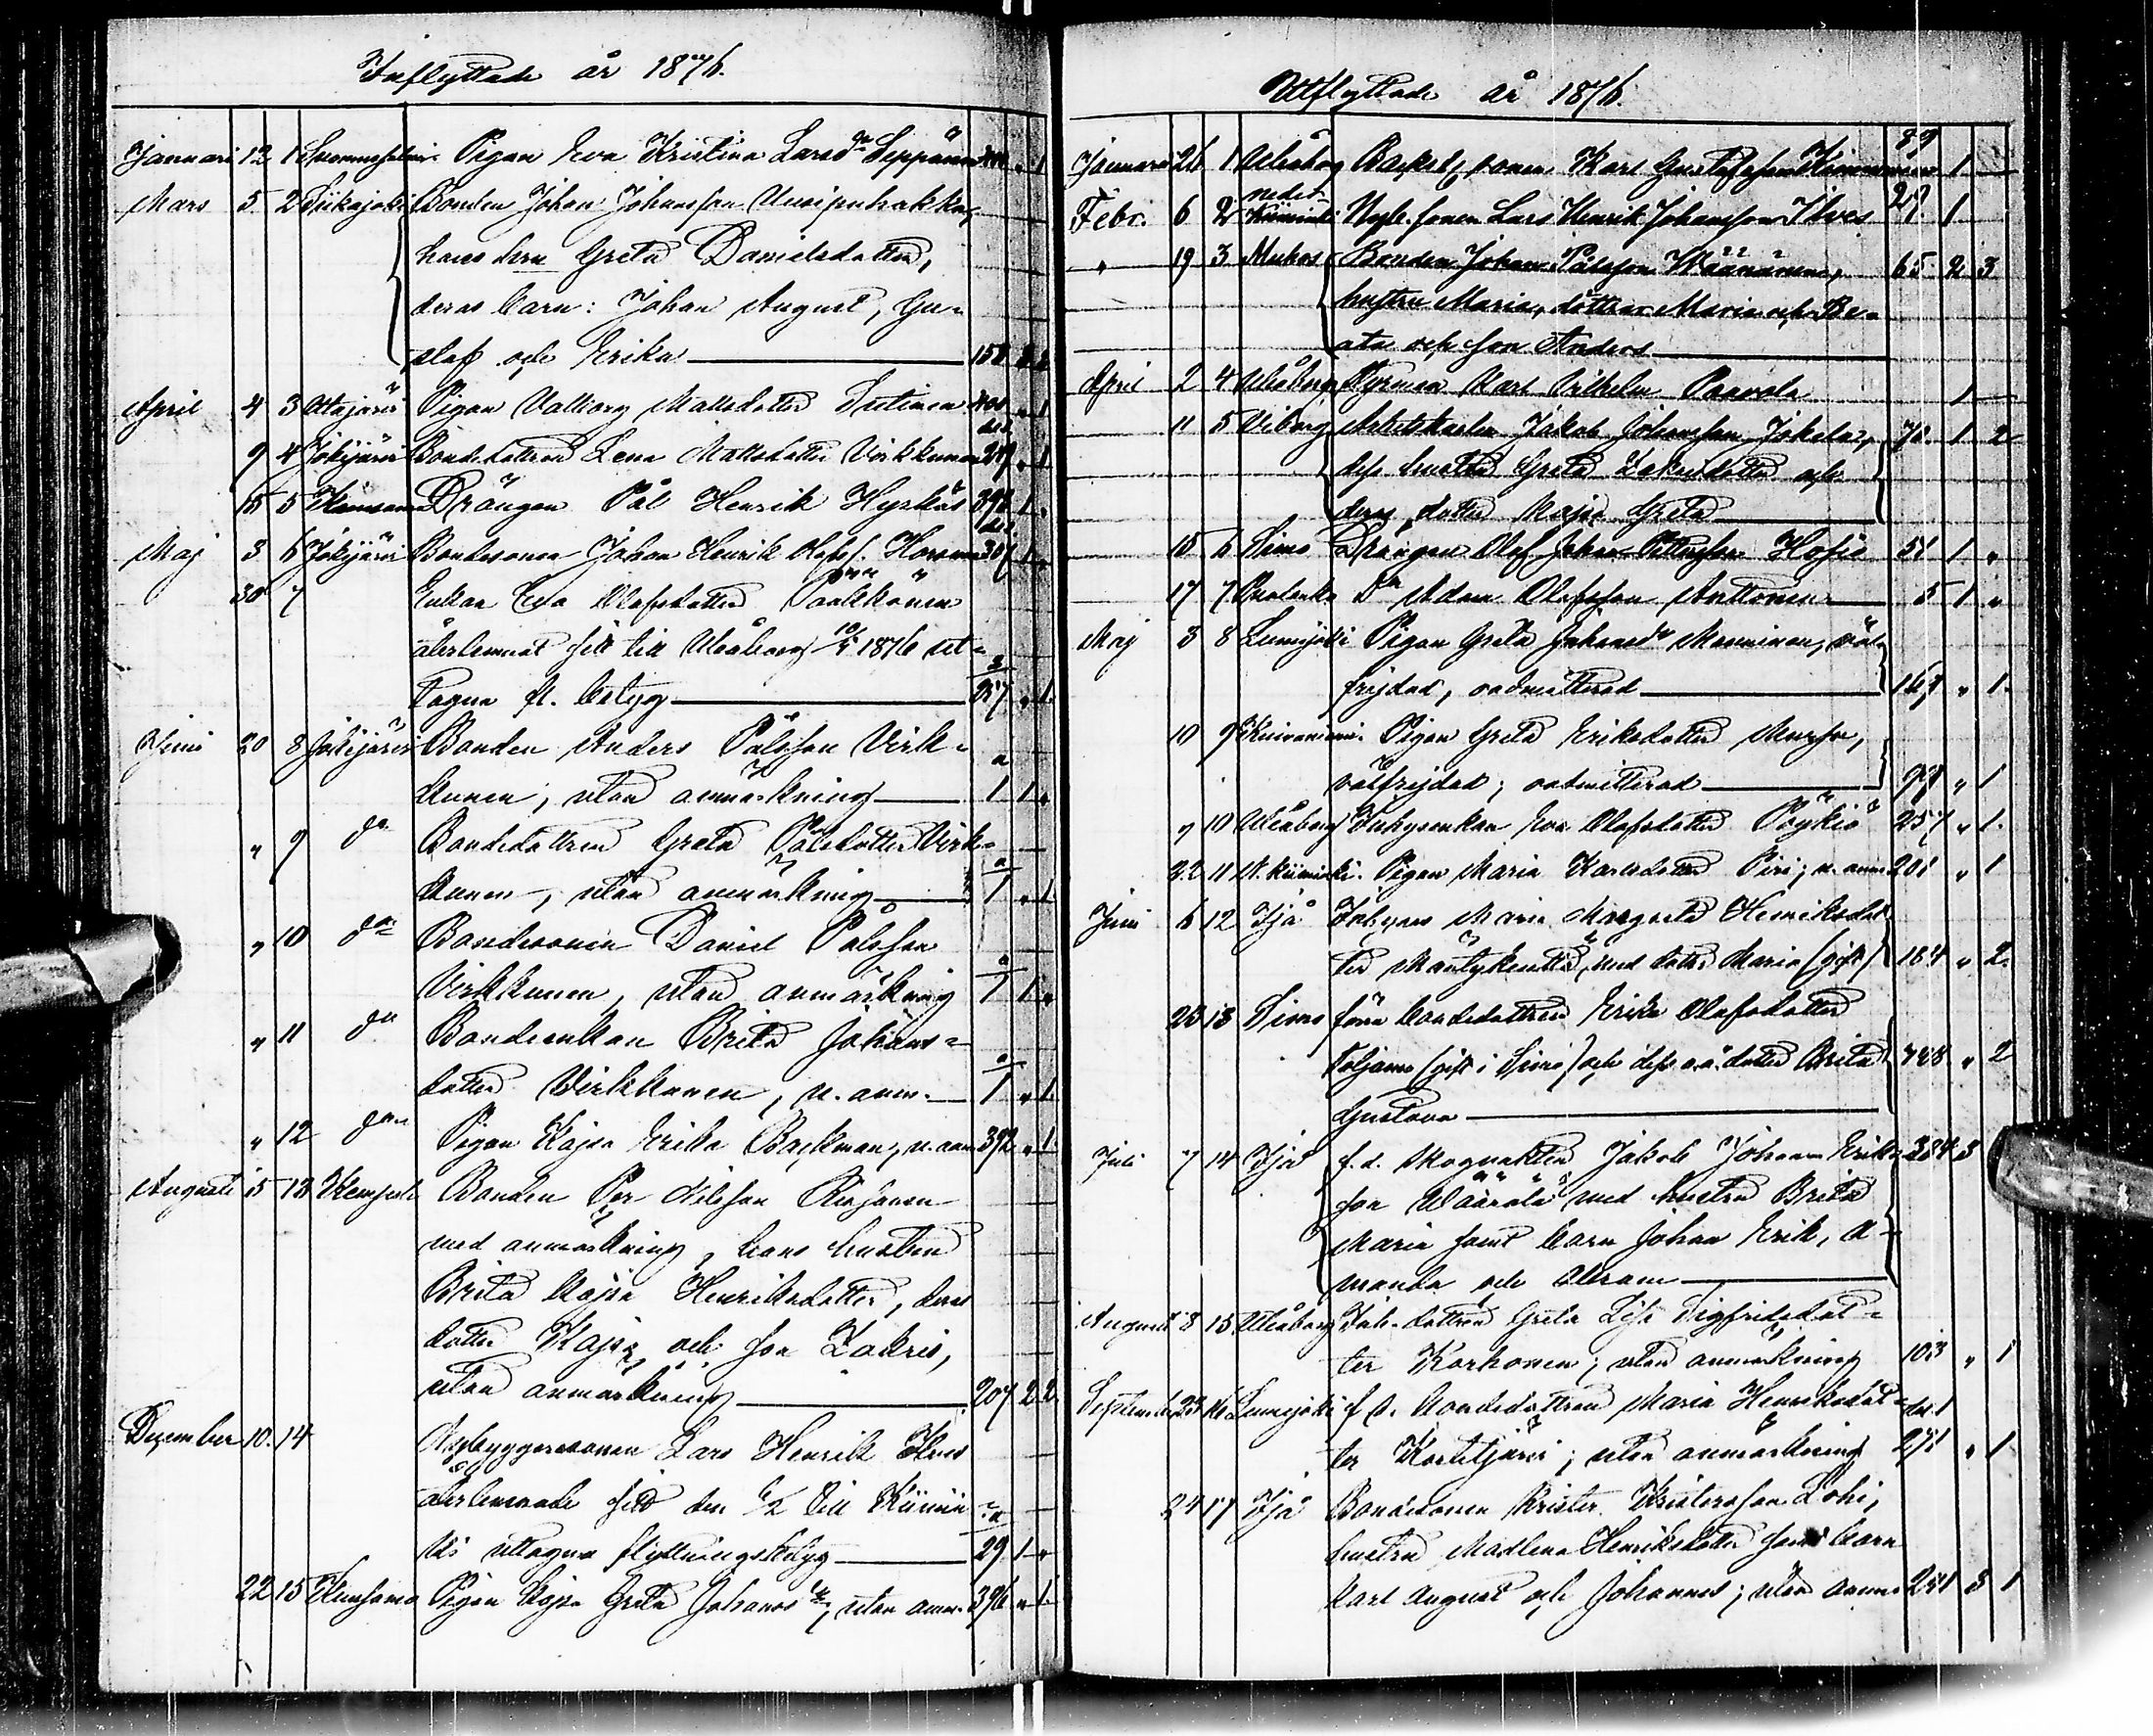 Inflyttade år 1876.
Januari 12 1 Suomussalmi Pigan Eva Kristina Larsdr Seppänen " 1
Mars 5 2 Siikajoki Bonden Johan Johansson Uusipuhakka,
hans hru Greta Danielsdotter,
deras barn: Johan August, Gu-
staf och Erika 158
April 4 3 Utajärvi Pigan Valborg Mattsdotter Tutinen " 1
9 4 Jokijärvi Bondedottren Lena Mattsdotter Virkkunen 249 " 1
15 5 Drängen Pål Henrik Hyrkäs 398 1 "
Maj 3 6 Jokijärvi Bondesonen Johan Henrik Olofss. 307 1 "
30 7 Enkan Eva Olofsdotter
återlemnat sitt till Uleåborg 10/5 1876 ut-
tagna fl. betyg 257 " 1.
Juni 20 8 Jokijärvi Bonden Anders Pålsson Virk-
kunen, utan anmärkning 1 1 "
" 9 do Bondedottren Greta Pålsdotter Virk-
kunen, utan anmärkning 1 " 1
" 10 do Bondesonen Daniel Pålsson
Virkkunen, utan anmärkning 1 1 "
" 11 do Bondeenkan Brita Johans-
dotter Virkkunen, u. anm. 1 " 1.
" 12 do Pigan Kajsa Erika Backman, u. anm 392 " 1.
Augusti 15 13 Kempele Bonden Per Nilsson
med anmärkning, hans hustru
Brita Kajsa Henriksdotter, deras
dotter Kajsa och son Zakris,
utan anmärkning 207 2 2
December 10. 14 Nybyggaresonen Lars Henrik Ilves
återlemnade sitt den 6/2 till Kiimin-
ki uttagna flyttningsbetyg 29 1 "
22 15 Kuusamo Pigan Kajsa Greta Johansdr, utan anm. 396 " 1.
Utflyttade år 1876.
Januari 26 1 Uleåborg sonen Karl Gustafsson 89 1
Febr. 6 2 neder Kiiminki Nyb. sonen Lars Henrik Johansson Ilves 29. 1
" 19 3 Muhos Bonden Johan Pålsson Väänänen, 65 2 3
hustru Maria, döttrar Maria och Be-
ata och son Anders
April 2 4 Uleåborg Karl Vilhelm Paavola 1
11 5 Viborg Arbetskarlen Jakob Johansson Jokela, 1 2
dess hustru Greta och
deras dotter Kajsa Greta
15 6 Simo Drängen Olof Johan Pettersson 51 1 "
17 7 Puolanka Dn Adam Olofsson Anttonen 5 1 "
Maj 3 8 Lumijoki Pigan Greta Johansdr Manninen, väl-
frejdad, oadmitterad 163 " 1.
10 9 Kuivaniemi Pigan Greta Eriksdotter
välfrejdad; oadmitterad 93 " 1
" 10 Uleåborg Inhysenkan Eva Olofsdotter Pöykiö 257 " 1.
22 11 N. Kiiminki. Pigan Maria Karlsdotter Piri; u. anm 201 " 1
Juni 6 12 Ijå Inhyses Maria Margareta Henriksdot
ter Mäntykenttä, med dotter Maria (gift) 184 " 2.
23 13 Simo förra bondedottren Erika Olofsdotter
(gift i Simo) och dess o.ä. dotter Brita 428 " 2
Gustava
Juli 7 14 Ijå f.d. Skogvaktaren Jakob Johan Eriks- 384 3
son Väärälä med hustru Brita
Maria samt barn Johan Erik, A-
manda och Abram
Augusti 8 15 Uleåborg Inh. dottren Greta Lisa Sigfridsdot-
ter Korhonen; utan anmärkning 103 " 1
September 23 16 Lumijoki f.d. bondedottren Maria Henriksdot-
ter Kortetjärvi; utan anmärkning 271 " 1
24 17 Ijå Bondesonen Krister Kristersson Lohi,
hustru Madlena Henriksdotter samt barn
Karl August och Johannes; utan anm 241 3 1